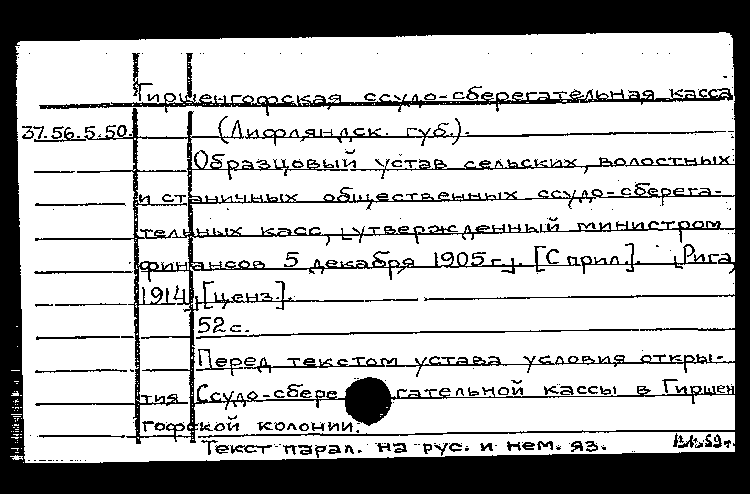 Гиршенгофская ссудо-сберегательная касса
37.56.5.50. (Лифляндск. губ.).
Образцовый устав сельских, волостных
и станичных общественных ссудо-сберега-
тельных касс, [утвержденный министром
финансов 5 декабря 1905 г.]. [С прил.]. [Рига,
1914], [ценз.].
52 с.
Перед текстом устава условия откры-
тия Ссудо-сберегательной кассы в Гиршен
гофской колонии.
Текст парал. на рус. и нем. яз.